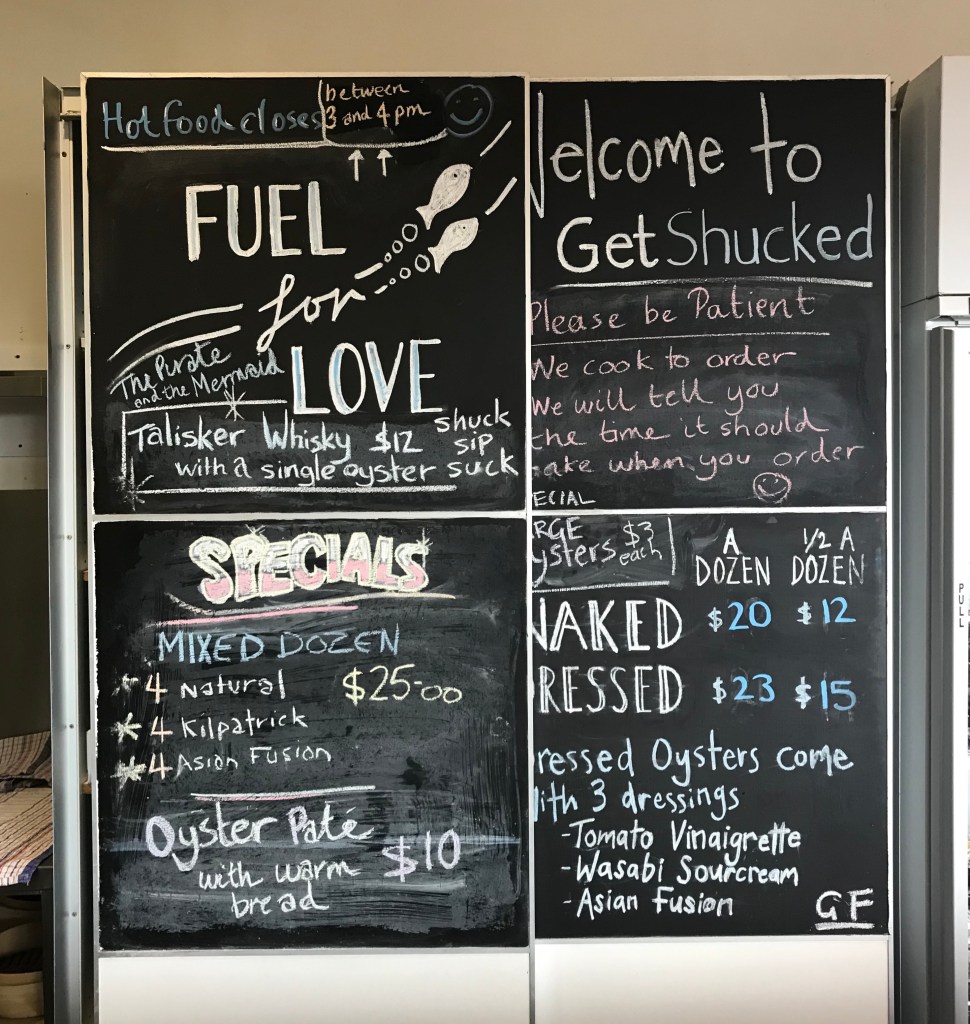 Hot food closes between
3 and 4 pm
FUEL
for
LOVE
The Pirate
and the Mermaid
Talisker Whisky $12
with a single oyster
shuck
sip
suck
SPECIALS
MIXED DOZEN
4 Natural $25-00
4 Kilpatrick
4 Asian Fusion
Oyster Paté
with warm
bread
$10
Welcome to
Get Shucked
Please be Patient
We cook to order
We will tell you
the time it should
ake when you order
ECIAL
RGE
ysters
$3
each
A
DOZEN
1/2 A
DOZEN
NAKED $20 $12
RESSED $23 $15
ressed Oysters come
ith 3 dressings
-Tomato Vinaigrette
-Wasabi Sourcream
-Asian Fusion
GF
PULL